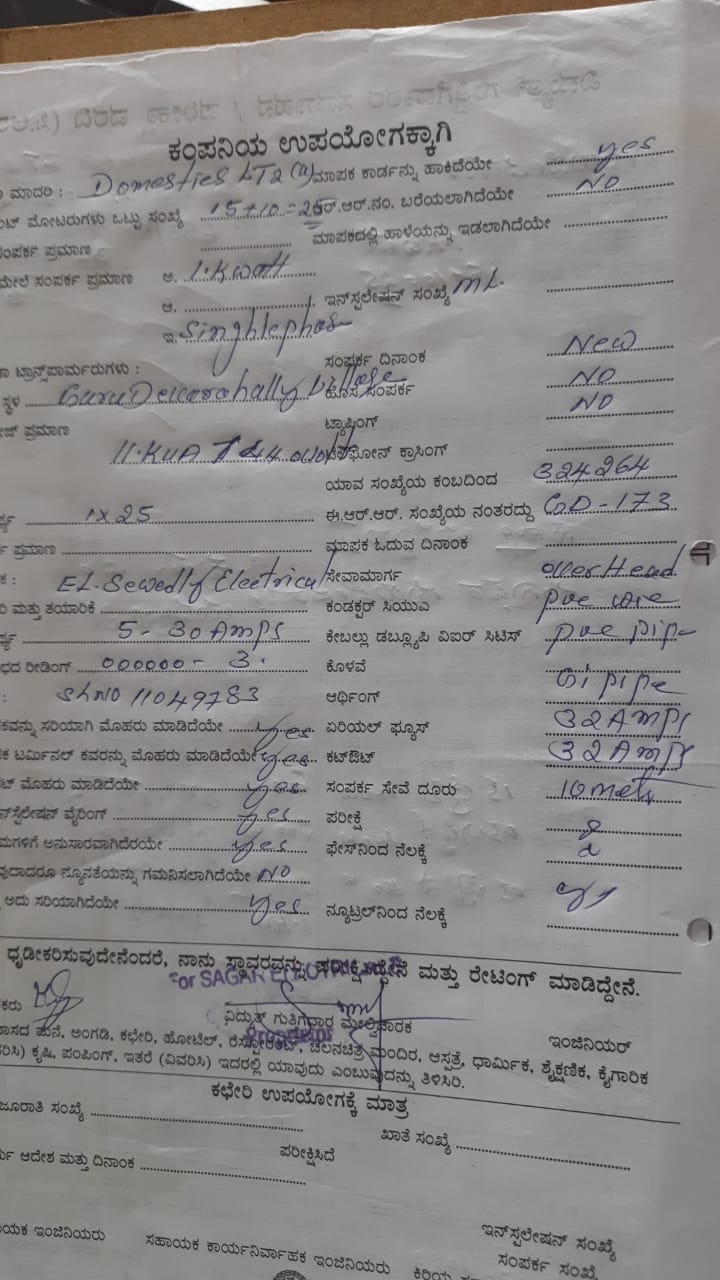 ಕಂಪನಿಯ ಉಪಯೋಗಕ್ಕಾಗಿ
ಮಾದರಿ : Domestics LT2 (a) ಮಾಪಕ ಕಾರ್ಡನ್ನು ಹಾಕಿದೆಯೇ yes
ಮೋಟರುಗಳು ಒಟ್ಟು ಸಂಖ್ಯೆ 15+10=25 ಆರ್.ಆರ್.ನಂ. ಬರೆಯಲಾಗಿದೆಯೇ NO
ಸಂಪರ್ಕ ಪ್ರಮಾಣ ಮಾಪಕದಲ್ಲಿ ಹಾಳೆಯನ್ನು ಇಡಲಾಗಿದೆಯೇ
ಮೇಲೆ ಸಂಪರ್ಕ ಪ್ರಮಾಣ ಅ. 1.Kwatt
ಆ. ಇನ್‌ಸ್ಪಲೇಷನ್ ಸಂಖ್ಯೆ ML
ಇ. Singhlephas
ಟ್ರಾನ್ಸ್‌ಪಾರ್ಮರುಗಳು : ಸಂಪರ್ಕ ದಿನಾಂಕ New
ಸ್ಥಳ Village ಸಂಪರ್ಕ NO
ಪ್ರಮಾಣ ಟ್ಯಾಪಿಂಗ್ NO
11.KUA ಕ್ರಾಸಿಂಗ್
ಯಾವ ಸಂಖ್ಯೆಯ ಕಂಬದಿಂದ 324264
1x25 ಈ.ಆರ್.ಆರ್. ಸಂಖ್ಯೆಯ ನಂತರದ್ದು GD-173
ಪ್ರಮಾಣ ಮಾಪಕ ಓದುವ ದಿನಾಂಕ
EL.Sewedly Electrical ಸೇವಾಮಾರ್ಗ overHead
ಮತ್ತು ತಯಾರಿಕೆ ಕಂಡಕ್ಟರ್ ಸಿಯುವಿ pve wire
5-30Amps ಕೇಬಲ್ಲು ಡಬ್ಲ್ಯೂಪಿ ವಿಐರ್ ಸಿಟಿಸ್ pve pipe
ರೀಡಿಂಗ್ 000000-3. ಕೊಳವೆ
ShNO 11049783 ಆರ್ಥಿಂಗ್ Gi pipe
ಸರಿಯಾಗಿ ಮೊಹರು ಮಾಡಿದೆಯೇ yes ಏರಿಯಲ್ ಫ್ಯೂಸ್ 32Amps
ಟರ್ಮಿನಲ್ ಕವರನ್ನು ಮೊಹರು ಮಾಡಿದೆಯೇ yes ಕಟ್‌ಔಟ್ 32Amps
ಮೊಹರು ಮಾಡಿದೆಯೇ yes ಸಂಪರ್ಕ ಸೇವೆ ದೂರು 10mets
ವೈರಿಂಗ್ yes ಪರೀಕ್ಷೆ
ಅನುಸಾರವಾಗಿದೆರಯೇ yes ಫೇಸ್‌ನಿಂದ ನೆಲಕ್ಕೆ
ನ್ಯೂನತೆಯನ್ನು ಗಮನಿಸಲಾಗಿದೆಯೇ NO
ಅದು ಸರಿಯಾಗಿದೆಯೇ yes ನ್ಯೂಟ್ರಲ್‌ನಿಂದ ನೆಲಕ್ಕೆ
ಧೃಡೀಕರಿಸುವುದೇನೆಂದರೆ, ನಾನು ಸ್ಥಾವರವನ್ನು ಪರೀಕ್ಷಿಸಿದ್ದೇನೆ ಮತ್ತು ರೇಟಿಂಗ್ ಮಾಡಿದ್ದೇನೆ.
For SAGAR
ವಿದ್ಯುತ್ ಗುತ್ತಿಗೆದಾರ ಮೇಲ್ವಿಚಾರಕ ಇಂಜಿನಿಯರ್
Proprietor
ಮನೆ, ಅಂಗಡಿ, ಕಛೇರಿ, ಹೋಟೆಲ್, ರೆಸ್ಟೋರೆಂಟ್, ಚಲನಚಿತ್ರ ಮಂದಿರ, ಆಸ್ಪತ್ರೆ, ಧಾರ್ಮಿಕ, ಶೈಕ್ಷಣಿಕ, ಕೈಗಾರಿಕ
ಕೃಷಿ, ಪಂಪಿಂಗ್, ಇತರೆ (ವಿವರಿಸಿ) ಇದರಲ್ಲಿ ಯಾವುದು ಎಂಬುವುದನ್ನು ತಿಳಿಸಿರಿ.
ಕಛೇರಿ ಉಪಯೋಗಕ್ಕೆ ಮಾತ್ರ
ಸಂಖ್ಯೆ ಖಾತೆ ಸಂಖ್ಯೆ
ಆದೇಶ ಮತ್ತು ದಿನಾಂಕ ಪರೀಕ್ಷಿಸಿದೆ
ಇನ್‌ಸ್ಪಲೇಷನ್ ಸಂಖ್ಯೆ
ಇಂಜಿನಿಯರು ಸಹಾಯಕ ಕಾರ್ಯನಿರ್ವಾಹಕ ಇಂಜಿನಿಯರು ಕಿರಿಯ ಸಂಪರ್ಕ ಸಂಖ್ಯೆ